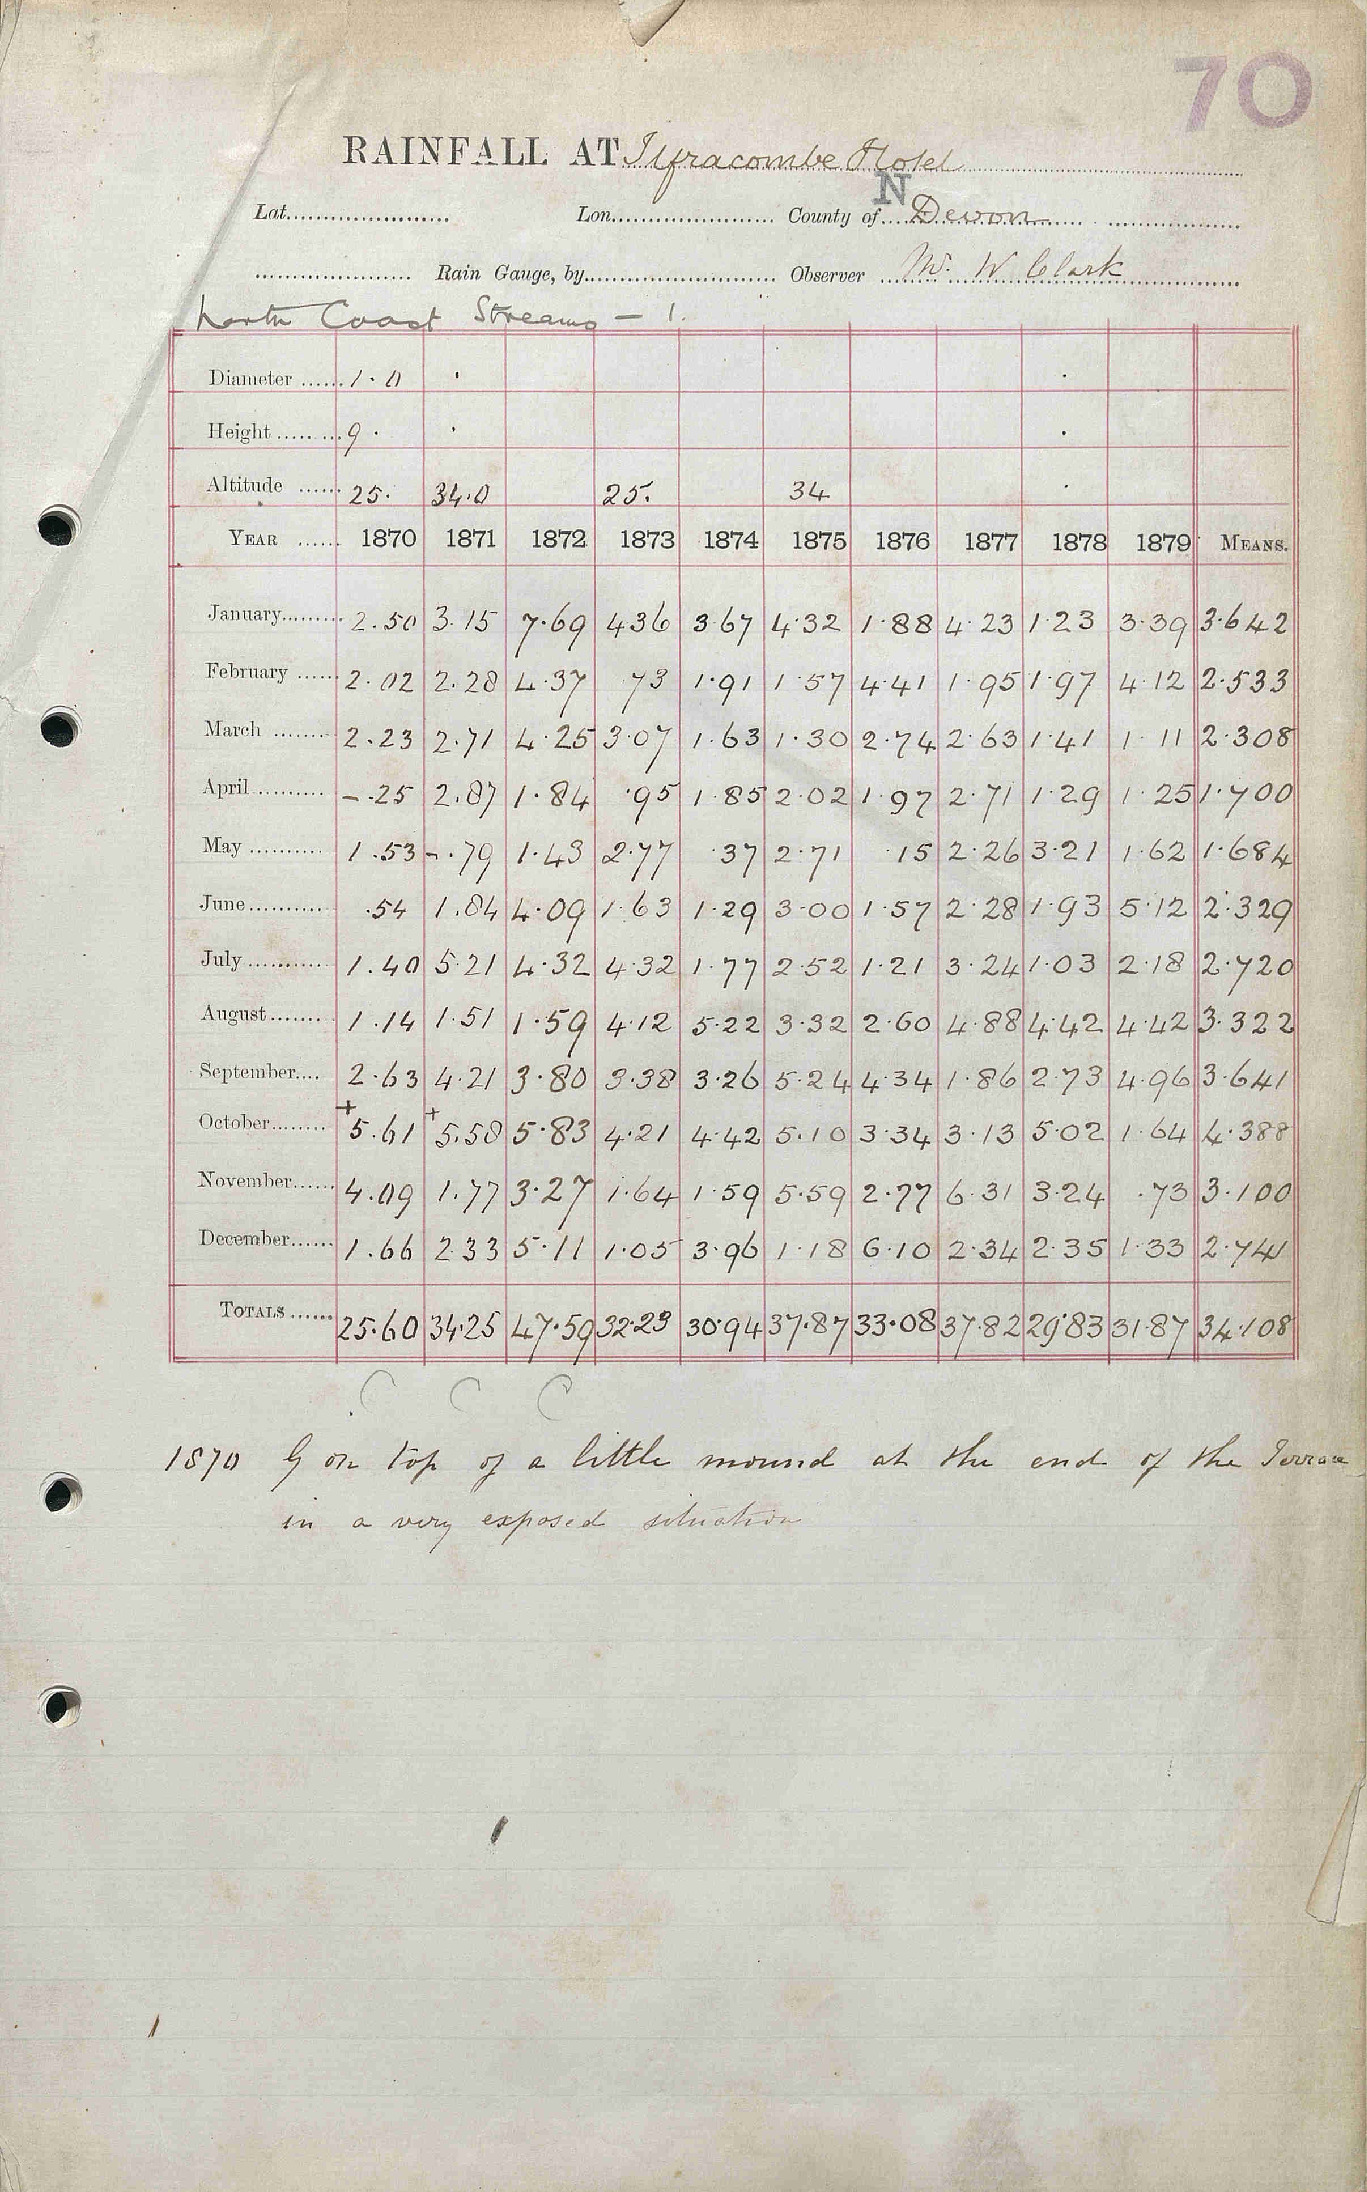 70
RAINFALL AT Ilfracombe Hotel
N
Lat. Lon. County of Devon
Rain Gauge, by Observer Mr. W Clark
North Coast Streams - 1.
Diameter 1.0
Height 9.
Altitude 25. 34.0 25. 34
YEAR 1870 1871 1872 1873 1874 1875 1876 1877 1878 1879 MEANS.
January 2.50 3.15 7.69 4 36 3.67 4.32 1.88 4.23 1.23 3.39 3.642
February 2.02 2.28 4.37 73 1.91 1.57 4.41 1.95 1.97 4.12 2.533
March 2.23 2.71 4.25 3.07 1.63 1.30 2.74 2.63 1.41 1 11 2.308
April -.25 2.87 1.84 .95 1.85 2.02 1.97 2.71 1.29 1.25 1.700
May 1.53 -.79 1.43 2.77 .37 2.71 .15 2.26 3.21 1.62 1.684
June .54 1.84 4.09 1.63 1.29 3.00 1.57 2.28 1.93 5.12 2.329
July 1.40 5.21 4.32 4.32 1.77 2.52 1.21 3.24 1.03 2.18 2.720
August 1.14 1.51 1.59 4.12 5.22 3.32 2.60 4.88 4.42 4.42 3.322
September 2.63 4.21 3.80 3.38 3.26 5.24 4.34 1.86 2.73 4.96 3.641
October +5.61 +5.58 5.83 4.21 4.42 5.10 3.34 3.13 5.02 1.64 4.388
November 4.09 1.77 3.27 1.64 1.59 5.59 2.77 6.31 3.24 .73 3.100
December 1.66 2.33 5.11 1.05 3.96 1.18 6.10 2.34 2.35 1.33 2.741
TOTALS 25.60 34.25 47.59 32.23 30.94 37.87 33.08 37.82 29.83 31.87 34.108
1870 G on top of a little mound at the end of the Terrace
in a very exposed situation